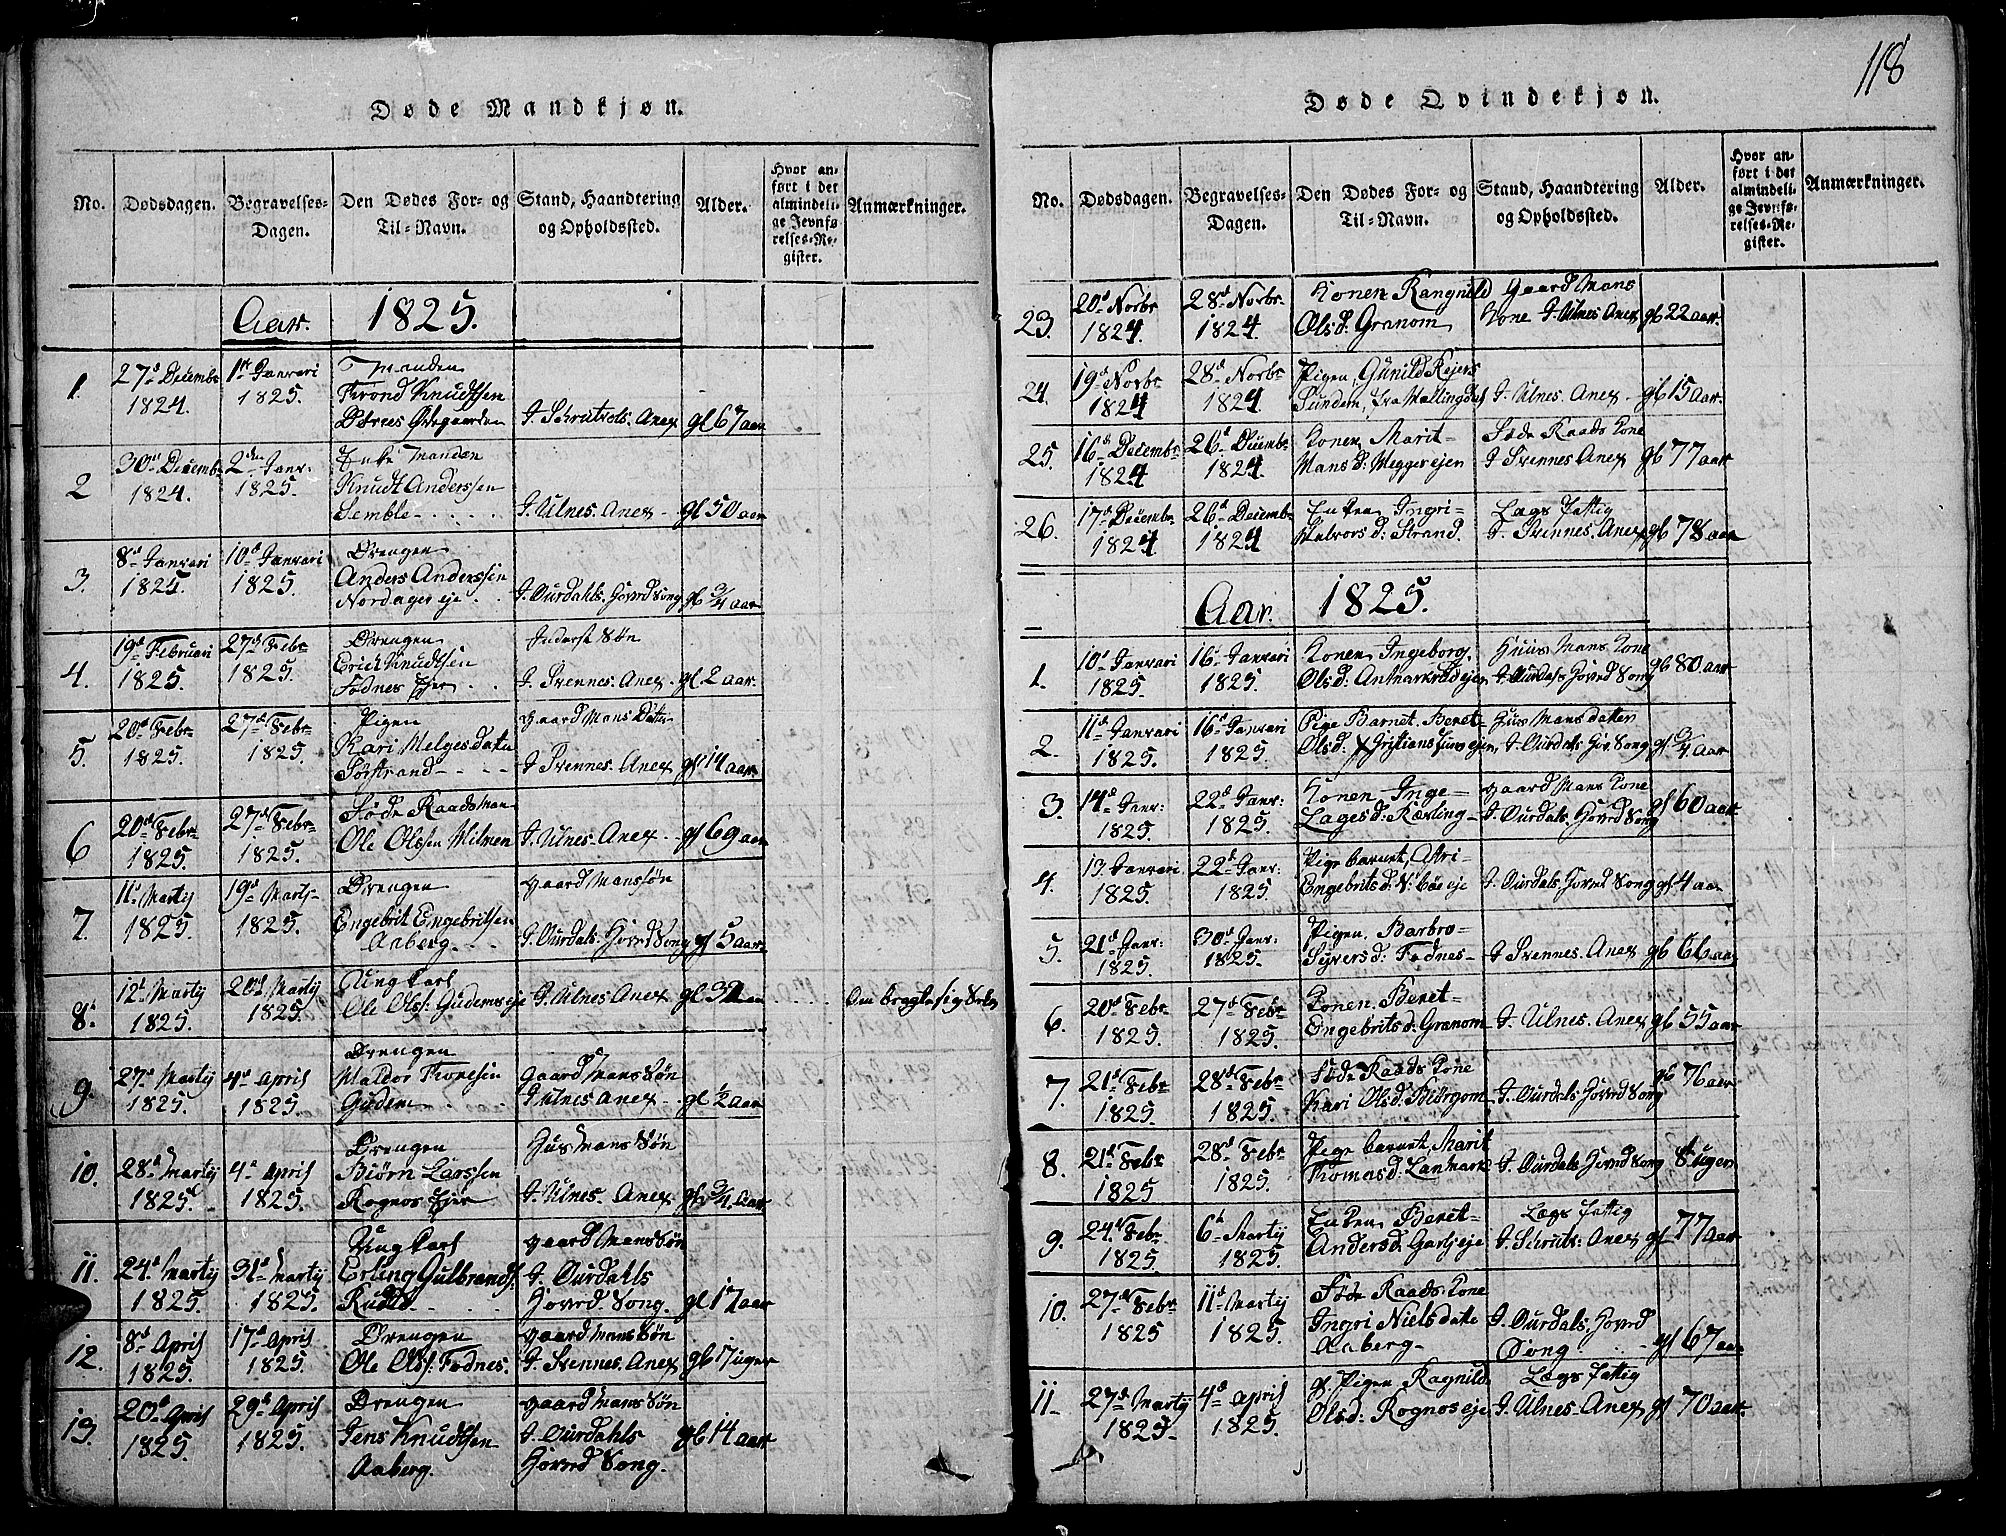 118
Døde Mandkjøn.
No. Dødsdagen. Begravelses-Dagen. Den Dødes For- og Til-Navn. Stand, Haandtering og Opholdssted. Alder. Hvor anført i det almindelige Jevnførelses-Register. Anmærkninger.
Aar. 1825.
1. 27d Decembr 1824. 1ste Janvari 1825. Manden Trond Knudtsen Østegaarden J. Schrutvols. Anex gl 67 aar
2 30d Decembr 1824. 2den Janr: 1825. Enke Manden Knudt Anderssen Semble J. Ulnes. Anex gl 50 aar
3. 8d Janvari 1825. 10d Janvari 1825. Drengen Anders Anderssen Nordagers eje J. Ourdahls. Hovrd Song gl 3/4 aar
4. 19d Februari 1825. 27d Febr 1825. Drengen Erich Knudtsen Fodnes Ejer Inderst Søn J. Svennes. Anex. gl 2 aar.
5. 20d Febr 1825. 27d Febr 1825. Pigen Kari Helgesdatter Sørstrand gaard Mans Datter J. Svennes. Anex gl 14 aar.
6 20d Febr 1825. 27d Febr 1825. Føde Raads Man Ole Olssen Milmen J. Ulnes. Anex gl 69 aar
7. 11d Martij 1825. 19d Martj 1825. Drengen Engebrit Engebritsen Aaberg. gaard Mans søn J. Ourdals. Hovrd Song gl 5 aar
8. 12d Martij 1825. 20d Martij 1825. Ung Karl Ole Ols: Gudems eje J. Ulnes Anex gl 32 aar Om bragte sig Selv
9. 27d Martij 1825. 4d April 1825. Drengen Haldor Thoresen Gudem gaard Mans Søn J. Ulnes Anex gl 1/2 aar
10. 28d Martij 1825. 4d April 1825. Drengen Biørn Larssen Rognos Ejer Hus Mans Søn J. Ulnes. Anex gl 3/4 Aar
11. 24d Martij 1825. 31d Martij 1825. Ung Karl Erling Gulbrands. Rudie gaard Mans Søn J. Ourdahls Hovrd Song. gl 17 aar
12. 8d April 1825. 17d April 1825. Drengen Ole Ols: Fodnes. gaard Mans Søn J. Svennes. Anex gl 17 uger
13. 20d April 1825. 29d April 1825. Drengen Jens Knudtsen Aaberg. gaard Mans Søn J. Ourdahls Hovrd Song. gl 14 aar
Døde Qvindekjøn.
No. Dødsdagen. Begravelses-Dagen. Den Dødes For- og Til-Navn. Stand, Haandtering og Opholdssted. Alder. Hvor anført i det almindelige Jevnførelses-Register. Anmærkninger.
23. 20d Novbr 1824. 28d Novbr. 1824. Konen Rangnild Olsd: Granom gaard Mans Kone J. Ulnes Anex gl 22 aar.
24. 19d Novbr 1824 28d Novbr 1824. Pigen, Gunild Rejers Sundem, fra Hallingdal J. Ulnes. Anex. gl 15 Aar.
25. 16d Decembr 1824 26d Decembr 1824. Konen Marit Hans d: Meggerejen Føde Raads Kone J. Svennes Anex. gl 77 aar
26. 17d Decembr 1824 26d Decembr 1824 Enken Ingri Halvors d: Strand. Lægs Fattig J. Svennes. Anex gl 78 aar
Aar. 1825.
1. 10d Janvari 1825. 16d Janvari 1825. Konen Ingeborg. Olsd: Huus Mans Kone J. Ourdals Hovrd Song gl 80 aar
2. 11d Janvari 1825. 16d Janvari 1825. Pige Barnet. Beret Olsd: Hus Mans datter J. Ourdals Hov Song gl 3/4 aar
3. 14d Janr: 1825. 22d Janr: 1825. Konen Inge Lagesd: Ræling gaard Mans Kone J. Ourdals. Hovrd Song gl 60 aar
4. 13. Janvari 1825. 22d Janr: 1825. Pige barnet, Engebritsd: N: bøe eje J. Ourdals. Hovrd Song gl 4 aar
5. 21d Janr: 1825. 30d Janr: 1825. Pigen. Barbro Syvers d: Fodnes J. Svennes. Anex gl 66 aar
6. 20d Febr 1825. 27d Febr 1825. Konen. Beret Engebrits d. Granom J. Ulnes. Anex gl 55 aar
7. 21d Febr 1825. 28d Febr 1825. Føde Raads Kone Kari Ols d: Biørgom J. Ourdals. Hovrd Song gl 76 aar
8. 21d Febr 1825 28d Febr 1825. Pige barnet, Marit Thomasd: Lanmark J. Ourdals Hovrd Song 8 uger
9. 24d Febr. 1825. 6d Martij 1825. Enken Beret Anders d: Garlseje Lægs Fattig J. Schrut: Anex gl 77 aar
10. 27d Febr 1825 11d Martij 1825. Føde Raads Kone Ingri Niels datter Aaberg J. Ourdals. Hovrd Song gl 67 aar
11 27d Martij 1825. 4d April 1825. gl. Pigen Ragnild Olsd: Rognos eje Lægs Fattig J. Ulnes Anex gl 70 aar